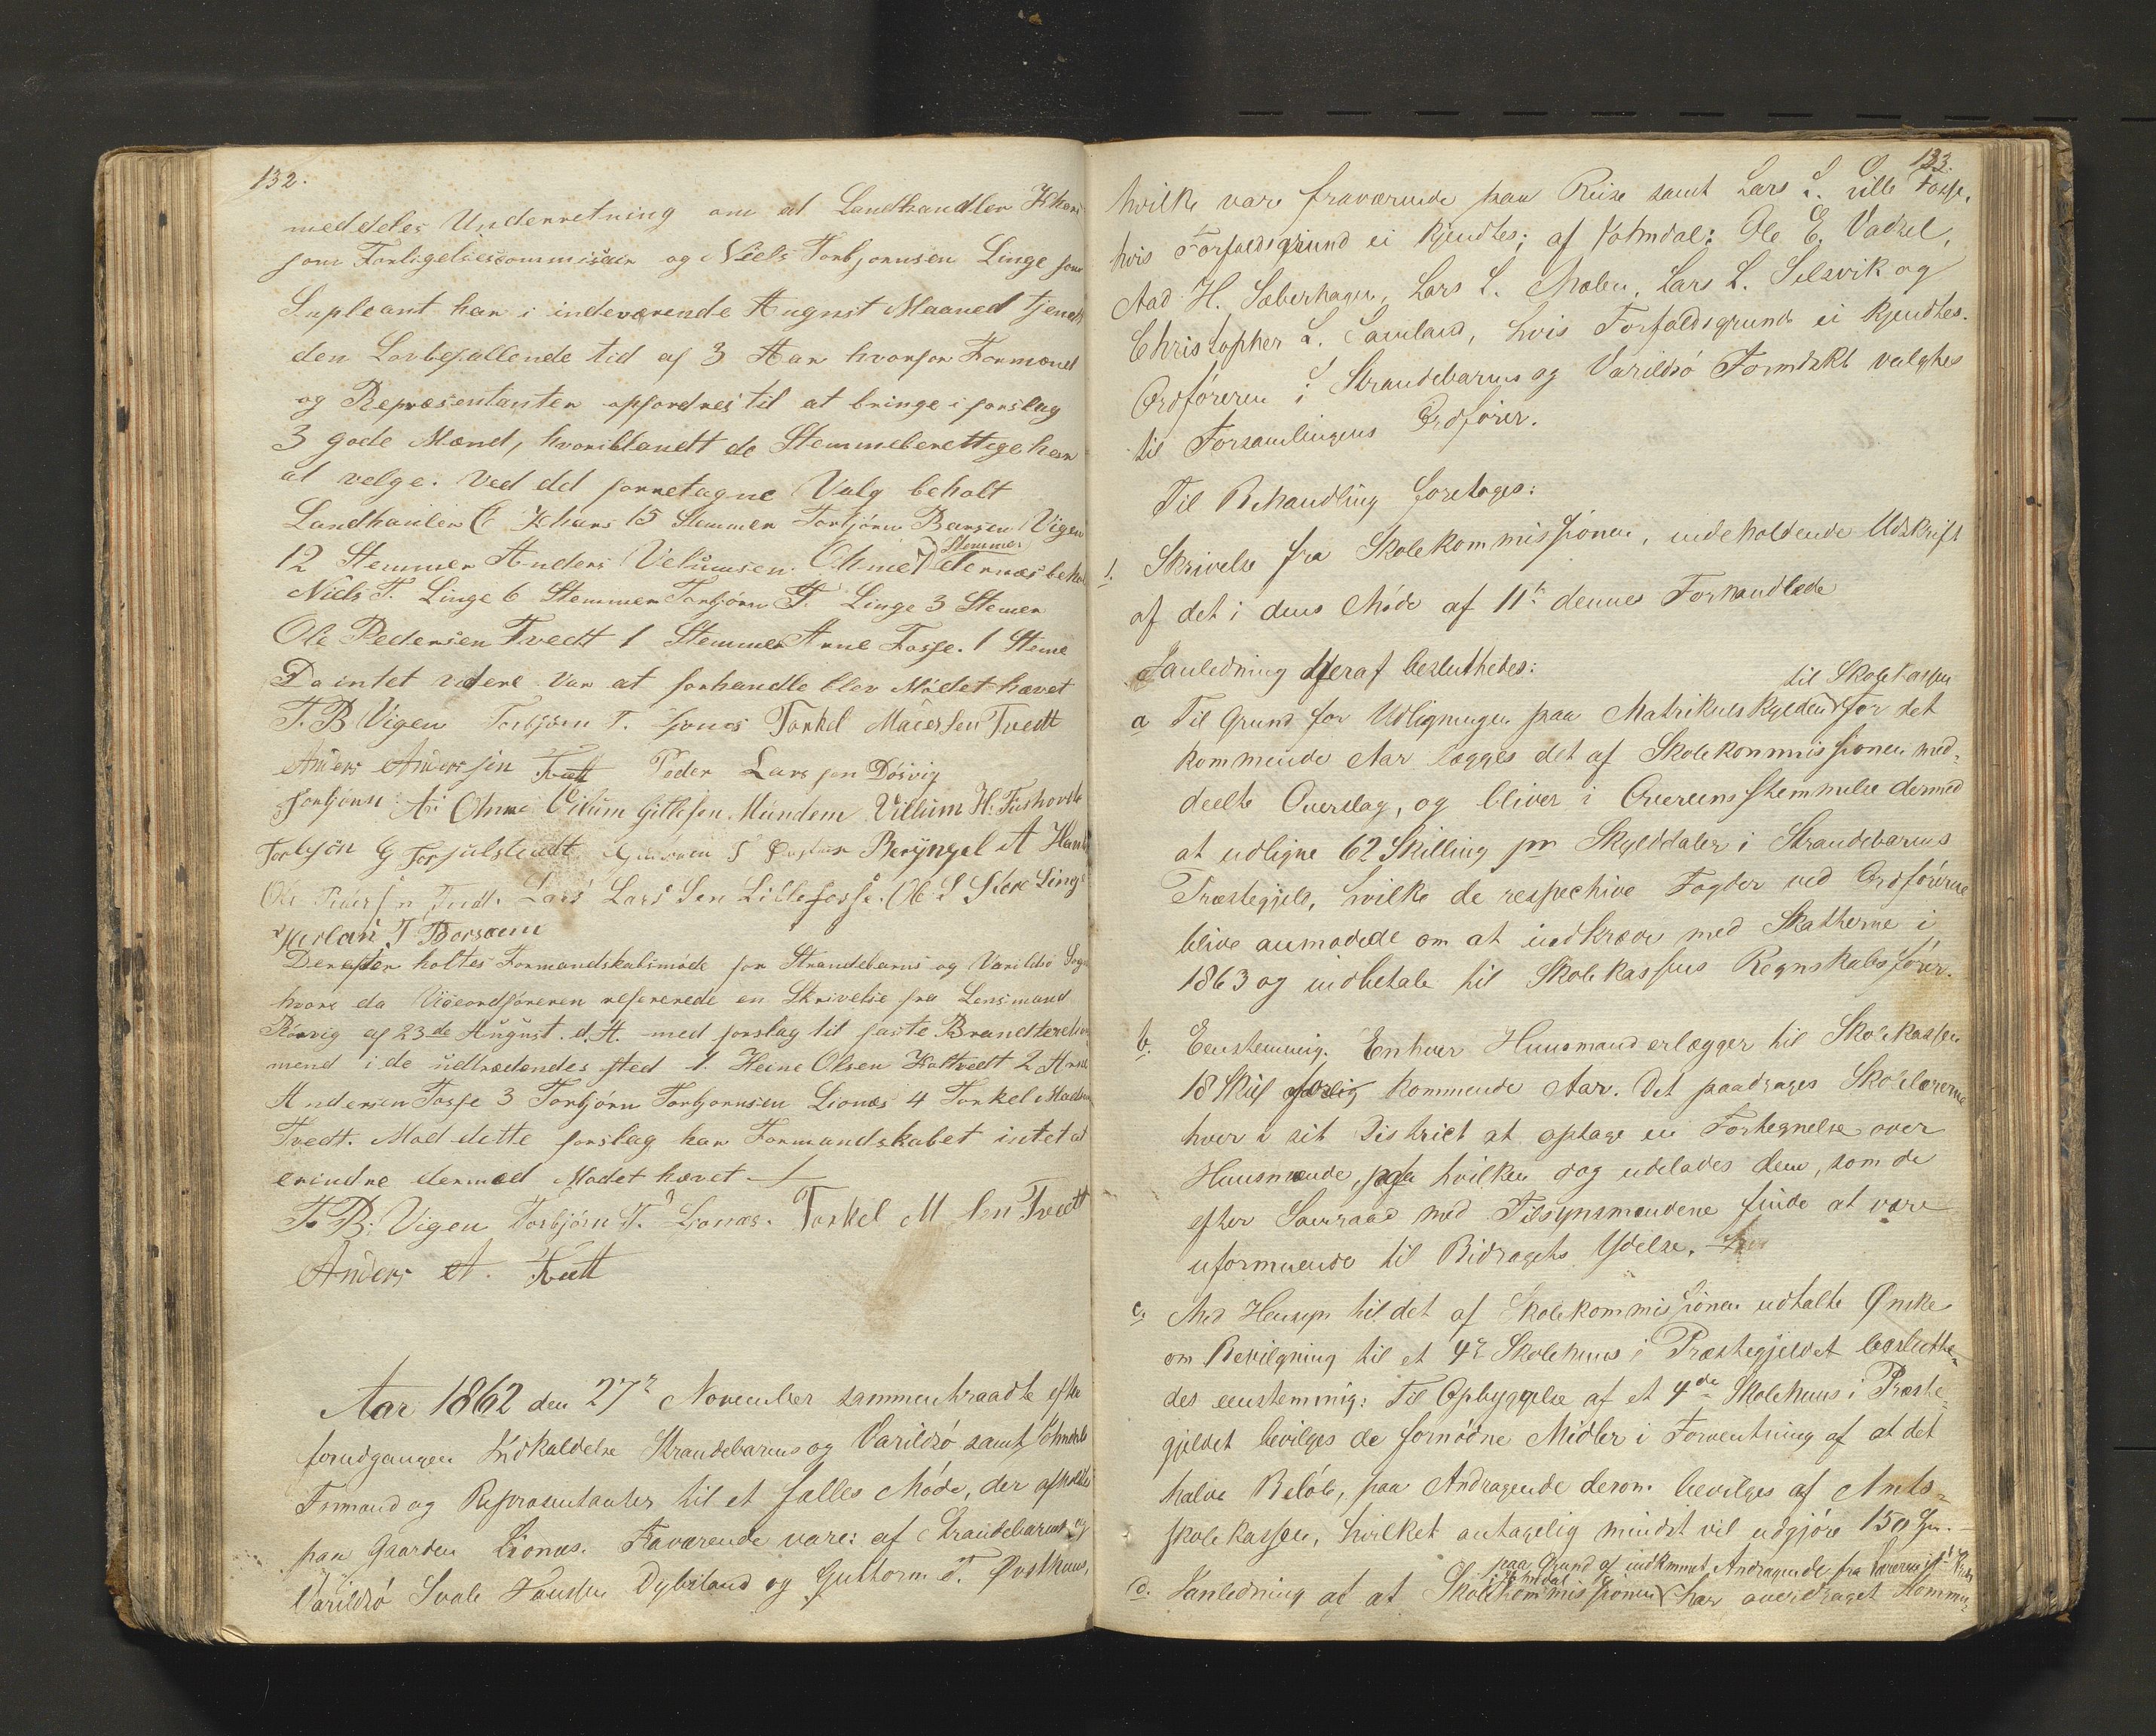 132.
meddeles Underretning om at Landhandler
som Forligelsescommisair og Niels Torbjørnsen Linge som
Supleant har i indeværende August Maaned tjent
den Lovbefallende tid af 3 Aar hvorfor Formænd
og Repræsentanter opfordres til at bringe i forslag
3 gode Mænd, hvoriblandt de Stemmeberettige har
at velge. Ved det foretagne Valg beholt
Landhanler 15 Stemmer Torbjörn Barsen Vigen
12 Stemmer Anders Velumsen Ohme 7 Stemmer dernæs beholt
Niels T. Linge 6 Stemmer Torbjörn T. Linge 3 Stemer
Ole Pedersen Tvedt 1 Stemmer Arne Fosse. 1 Steme
Da intet videre var at forhandle blev Mödet hævet
T. B Vigen Torbjörn T. Torkel Tvedt
Anders Anderssen Tvedt Peder Larssen Dösvig
Torbjörn Ohme Villum Gitlesen Mundem Villum H.
Torbjön G
Lars Lars Sen Lillefosse. Ole S Store Linge
Derefter holtes Formandskabsmöde for Strandebarms og Varildsö Sogn
hvore da Viceordföreren refererede en Skrivelse fra Lensmand
Rörvig af 23de August d. A. med forslag til faste Brandt
mend i de udtrædendes sted 1. Heine Olsen 2 Arne
Andersen Fosse 3 Torbjörn Torbjornsen Lionæs 4 Torkel Madsen
Tvedt. Mod dette forslag har Formandskabet intet at
erindre dermed Modet hævet
T. B. Vigen Torbjörn T. Lionæs. Torkel M Sen Tvedt
Anders A. Tvedt
Aar 1862 den 27r November sammentraadte efter
forudgangen Indkaldelse Strandebarms og Varildsö samt Jöhndals
Formænd og Repræsentanter til et fælles Möde, der afholdtes
paa Gaarden Lionæs. Fraværende vare: af Strandebarms og
Varildsö Dybsland og Guttorm T. Östhuus,
133.
hvilke vare fraværende paa Reise samt Lars L. Lille Fosse,
hvis Forfaldsgrund ei kjendtes; af Johndal: Ole E.
Aad H. Sæberhagen, Lars L. Mælen, Lars L. Selsvik og
Christopher L. Samland, hvis Forfaldsgrund ei kjendtes.
Ordföreren i Strandebarms og Varildsö Formdskb valgtes
til Forsamlingens Ordförer.
Til Behandling foretoges:
1. Skrivelse fra Skolekommissionen, indeholdende Udskrift
af det i dens Möde af 11te dennes Forhandlede
Ianledning deraf besluttedes:
a Til Grund for Udligningen paa Matrikulskylden til Skolekassen for det
kommende Aar lægges det af Skolekommissionen med-
deelte Overslag, og bliver i Overeensstemmelse dermed
at udligne 62 Skilling pr Skylddaler i Strandebarms
Præstegjeld, hvilke de respective Fogder ved Ordförerne
blive anmodede om at indkræve med Skatterne i
1863 og indbetale til Skolekassens Regnskabsförer.
b. Eenstemmig. Enhver Huusmand erlægger til Skolekassen
18 Skill kommende Aar. Det paadrages Skolelærerne
hver i sit District at optage en Fortegnelse over
Huusmænde, paa hvilken dog udelades dem, som de
efter Samraad med Tilsynsmændene finde at være
uformuende til Bidragets Ydelse.
c. Med Hensyn til det af Skolekommissionen udtalte Ønske
om Bevilgning til et 4r Skolehuus i Præstegjeldet beslutte-
des eenstemmig: Til Opbyggelse af et 4de Skolehuus i Præste-
gjeldet bevilges de fornödne Midler i Forventning af at det
halve Belöb, paa Andragende derom bevilges af Amts-
skolekassen, hvilket antagelig mindst vil udgjöre 150 Spd.
d. Ianledning af at Skolekommissionen i Jöhndal paa Grund af indkommet Andragende fra har andraget Kommu-